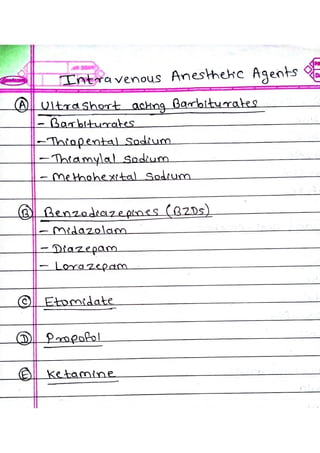 Intravenous Anesthetic Agents
(A) Ultrashort acting Barbiturates
- Barbiturates
- Thiopental Sodium
- Thiamylal Sodium
- Methohexital Sodium
(B) Benzodiazepines (BZDs)
- Midazolam
- Diazepam
- Lorazepam
(C) Etomidate
(D) Propofol
(E) Ketamine